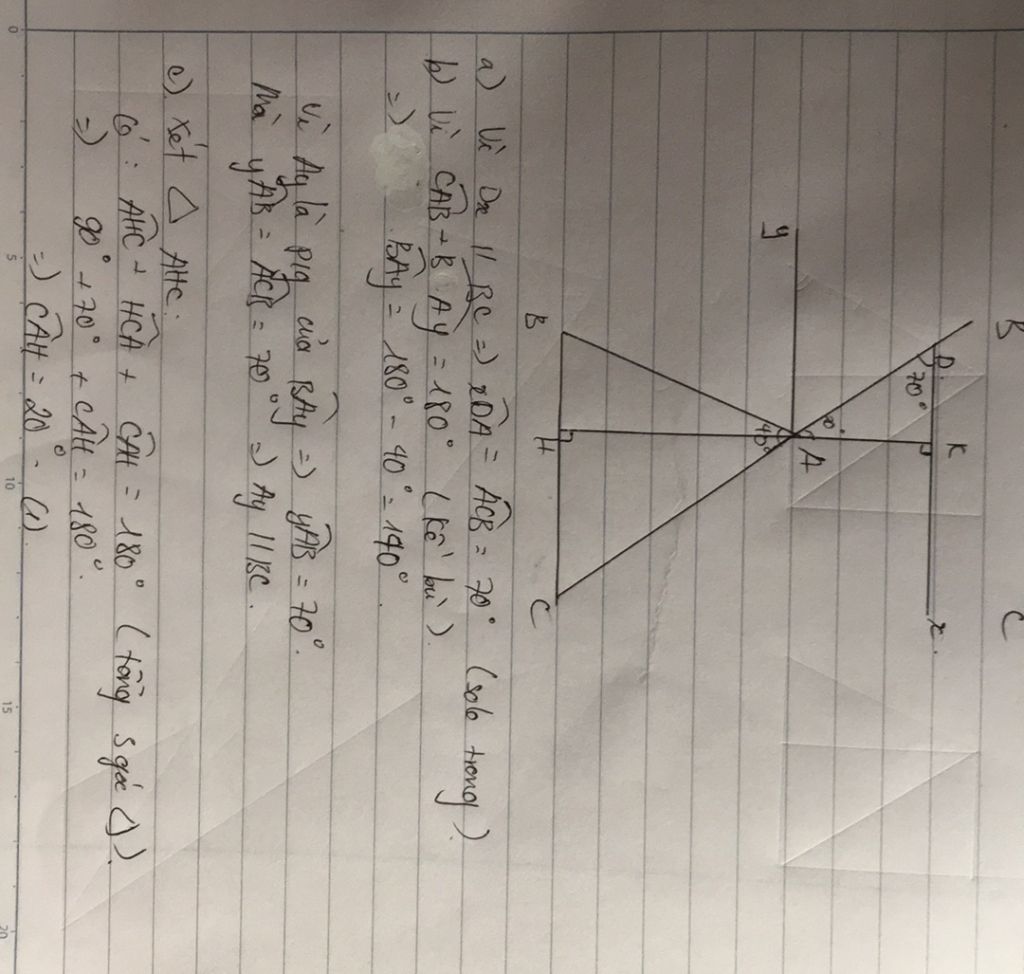 B C
D K x
70°
y A
40°
B H C
a) Vì Dx // BC => xDA = ACB = 70° (sole trong).
b) Vì CAB + BAy = 180° (kề bù).
=> BAy = 180° - 40° = 140°.
Vì Ay là p/g của BAy => yAB = 70°.
Mà yAB = ACB = 70° => Ay // BC.
c). Xét △ AHC.
Có: AHC + HCA + CAH = 180° (tổng 3 góc △).
=> 90° + 70° + CAH = 180°.
=> CAH = 20°. (1).
0 5 10 15 20